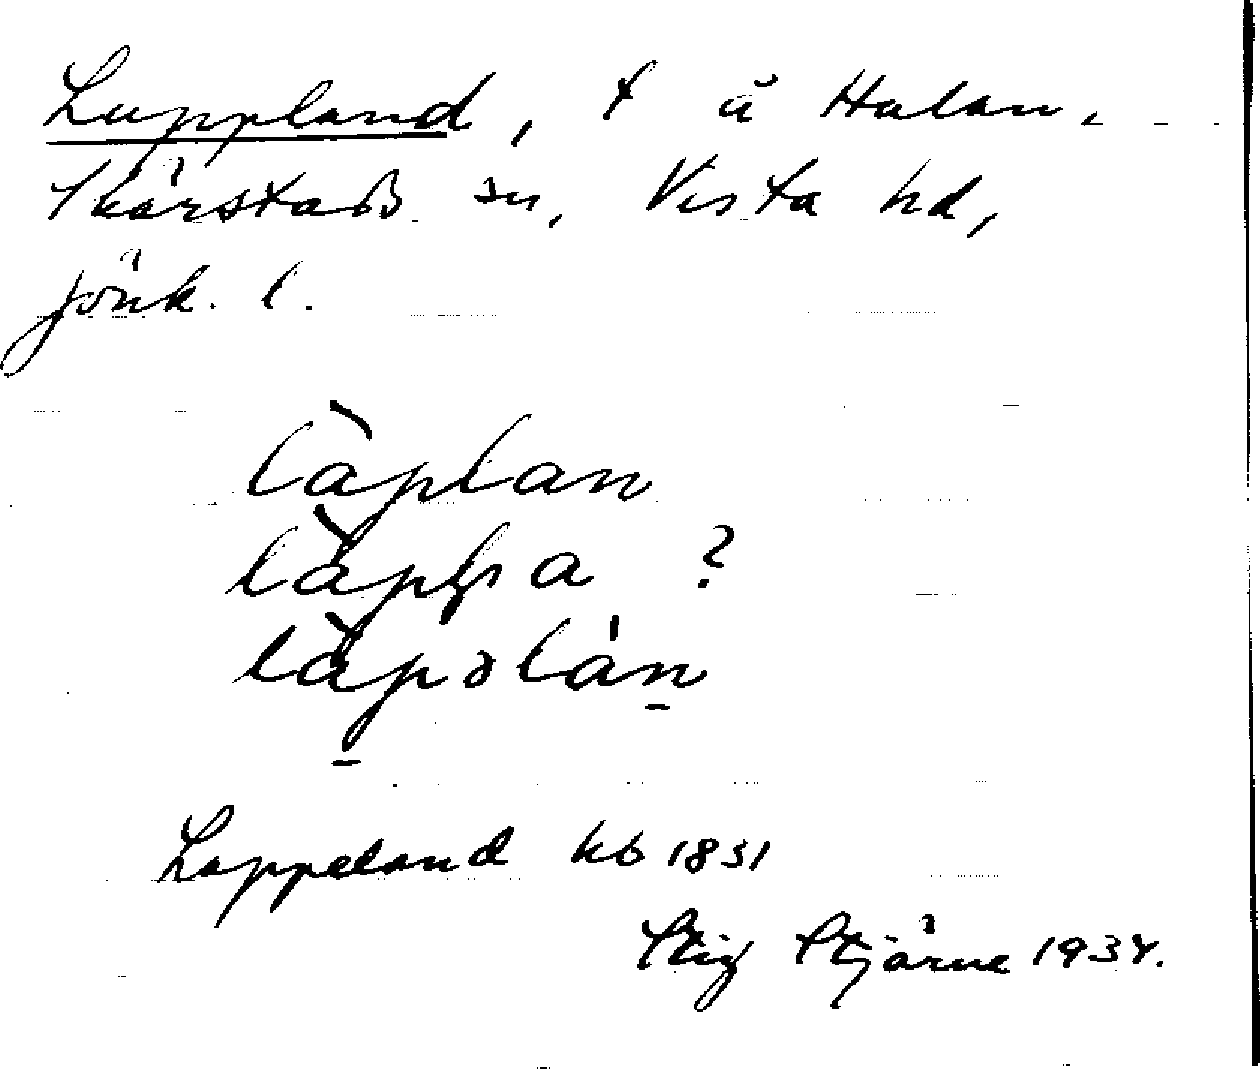 Lappland, t å Halan.
Skärstads sn, Vista hd,
Jönk. l.
làplan
làpla ?
làpəlán
Lappeland kb 1831
Stig Stjärne 1934.